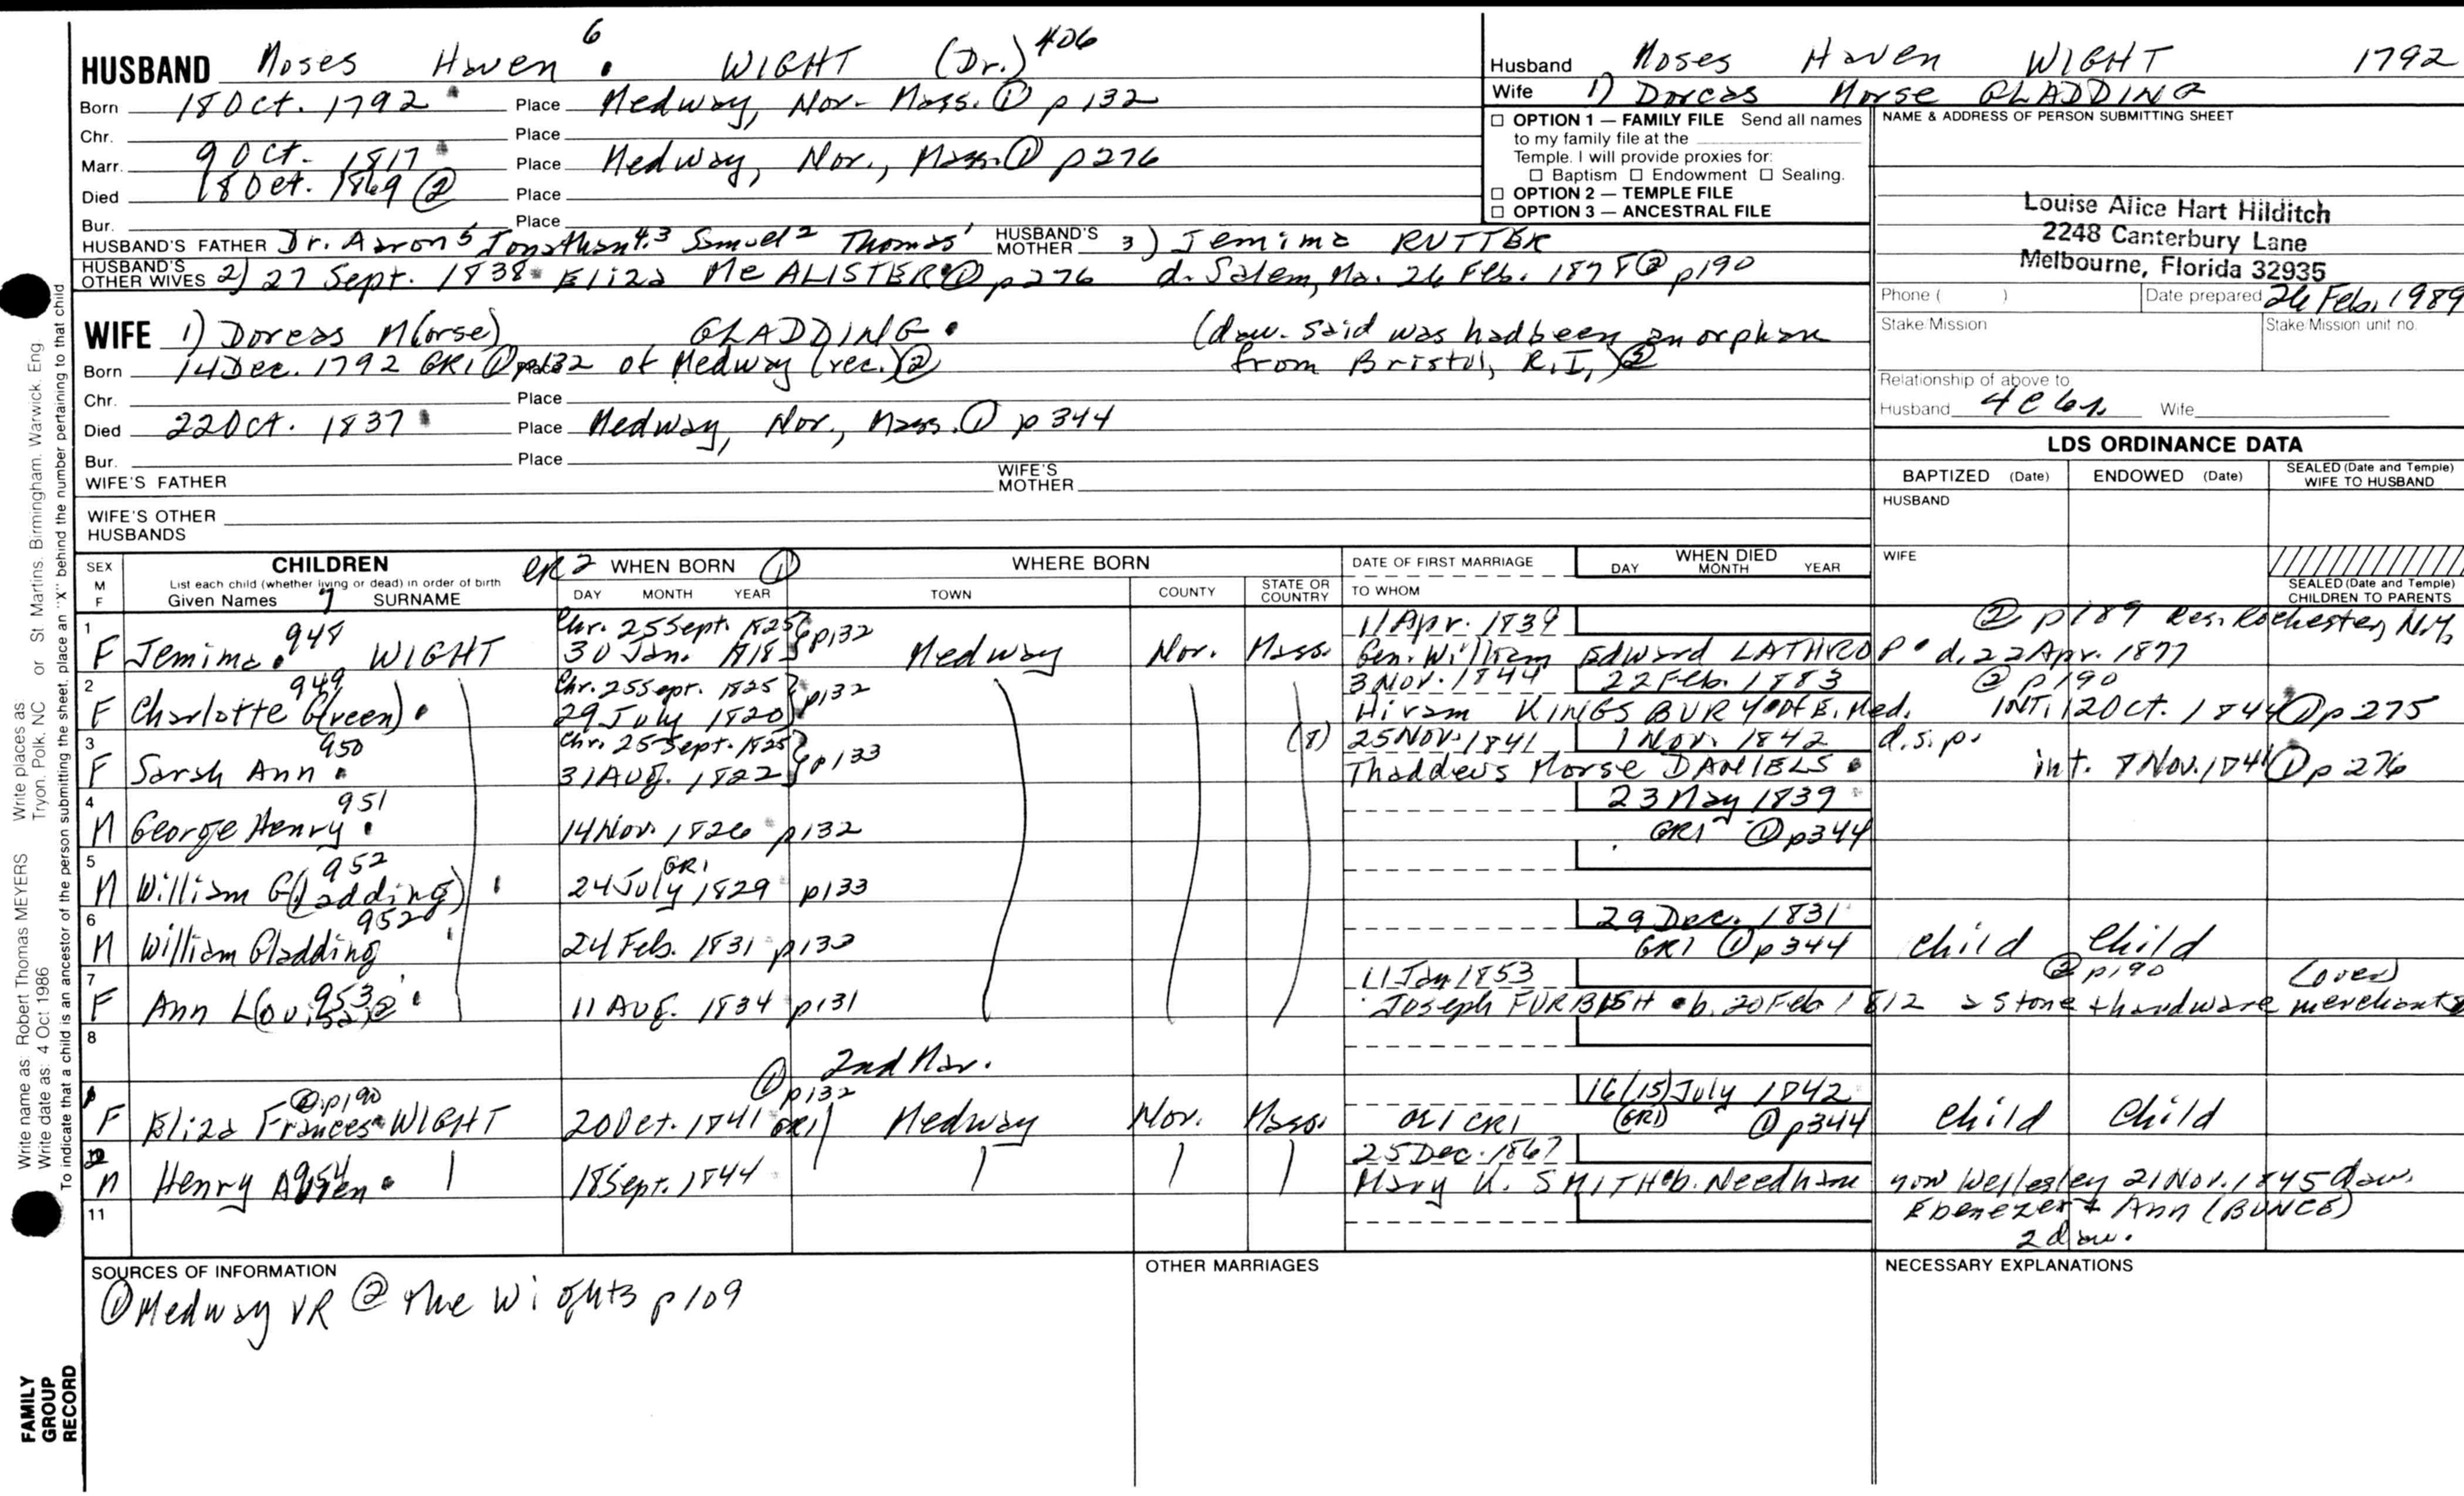 HUSBAND Moses Haven 6 WIGHT (Dr.) 406
Born 18 Oct. 1792 Place Medway, Nor. Mass. ① p132
Chr. Place
Marr. 9 Oct. 1817 Place Medway, Nor., Mass. ① p276
Died 18 Oct. 1869 ② Place
Bur. Place
HUSBAND'S FATHER Dr. Aaron 5 Jonathan 4,3 Samuel 2 Thomas 1 HUSBAND'S MOTHER 3) Jemima RUTTER
HUSBAND'S OTHER WIVES 2) 27 Sept. 1838 Eliza McALISTER ① p276 d. Salem, Ma. 26 Feb. 1878 ② p190
WIFE 1) Dorcas M(orse) GLADDING (dau. said was had been an orphan
Born 14 Dec. 1792 GR1 ① p132 of Medway (rec.) ② from Bristol, R.I.) ②
Chr. Place
Died 22 Oct. 1837 Place Medway, Nor., Mass. ① p344
Bur. Place
WIFE'S FATHER WIFE'S MOTHER
WIFE'S OTHER HUSBANDS
Husband Moses Haven WIGHT 1792
Wife 1) Dorcas Morse GLADDING
☐ OPTION 1 — FAMILY FILE Send all names
to my family file at the
Temple. I will provide proxies for:
☐ Baptism ☐ Endowment ☐ Sealing.
☐ OPTION 2 — TEMPLE FILE
☐ OPTION 3 — ANCESTRAL FILE
NAME & ADDRESS OF PERSON SUBMITTING SHEET
Louise Alice Hart Hilditch
2248 Canterbury Lane
Melbourne, Florida 32935
Phone ( ) Date prepared 26 Feb. 1989
Stake/Mission Stake/Mission unit no.
Relationship of above to
Husband 4C6r. Wife
LDS ORDINANCE DATA
BAPTIZED (Date) ENDOWED (Date) SEALED (Date and Temple) WIFE TO HUSBAND
HUSBAND
WIFE
SEALED (Date and Temple) CHILDREN TO PARENTS
SEX M F
CHILDREN
List each child (whether living or dead) in order of birth
Given Names 7 SURNAME
CR2 WHEN BORN ①
DAY MONTH YEAR
WHERE BORN
TOWN COUNTY STATE OR COUNTRY
DATE OF FIRST MARRIAGE
TO WHOM
WHEN DIED
DAY MONTH YEAR
1 948 Chr. 25 Sept. 1825 p132 11 Apr. 1839 ② p189 Res. Rochester, N.Y.
F Jemima WIGHT 30 Jan. 1818 Medway Nor. Mass. Gen. William Edward LATHROP d. 22 Apr. 1877
2 949 Chr. 25 Sept. 1825 p132 3 Nov. 1844 22 Feb. 1883 ② p190
F Charlotte G(reen) 29 July 1820 Hiram KINGSBURY of E. Med. INT. 12 Oct. 1844 ① p275
3 950 Chr. 25 Sept. 1825 p133 (8) 25 Nov. 1841 1 Nov. 1842 d.s.p.
F Sarah Ann 31 Aug. 1822 Thaddeus Morse DANIELS int. 8 Nov. 1841 ① p276
4 951 23 May 1839
M George Henry 14 Nov. 1826 p132 GR1 ① p344
5 952 GR1
M William G(ladding) 24 July 1829 p133
6 952a 29 Dec. 1831
M William Gladding 24 Feb. 1831 p133 GR1 ① p344 Child Child
7 953 11 Jan 1853 ② p190 (over)
F Ann L(ouisa) 11 Aug. 1834 p131 Joseph FURBISH b. 20 Feb 1812 a stone + hardware merchant
8
2nd Mar.
② p190 ① p132 16(15) July 1842
F Eliza Frances WIGHT 20 Oct. 1841 GR1 Medway Nor. Mass. (GR1) ① p344 Child Child
954 25 Dec. 1867
M Henry A 18 Sept. 1844 Mary K. SMITH b. Needham now Wellesley 21 Nov. 1845 dau.
11 Ebenezer + Ann (BUNCE)
2 dau.
SOURCES OF INFORMATION
① Medway VR ② The Wights p109
OTHER MARRIAGES
NECESSARY EXPLANATIONS
Write name as: Robert Thomas MEYERS Write places as Tryon, Polk, NC or St Martins, Birmingham, Warwick, Eng
Write date as: 4 Oct 1986
To indicate that a child is an ancestor of the person submitting the sheet, place an "X" behind the number pertaining to that child
FAMILY
GROUP
RECORD